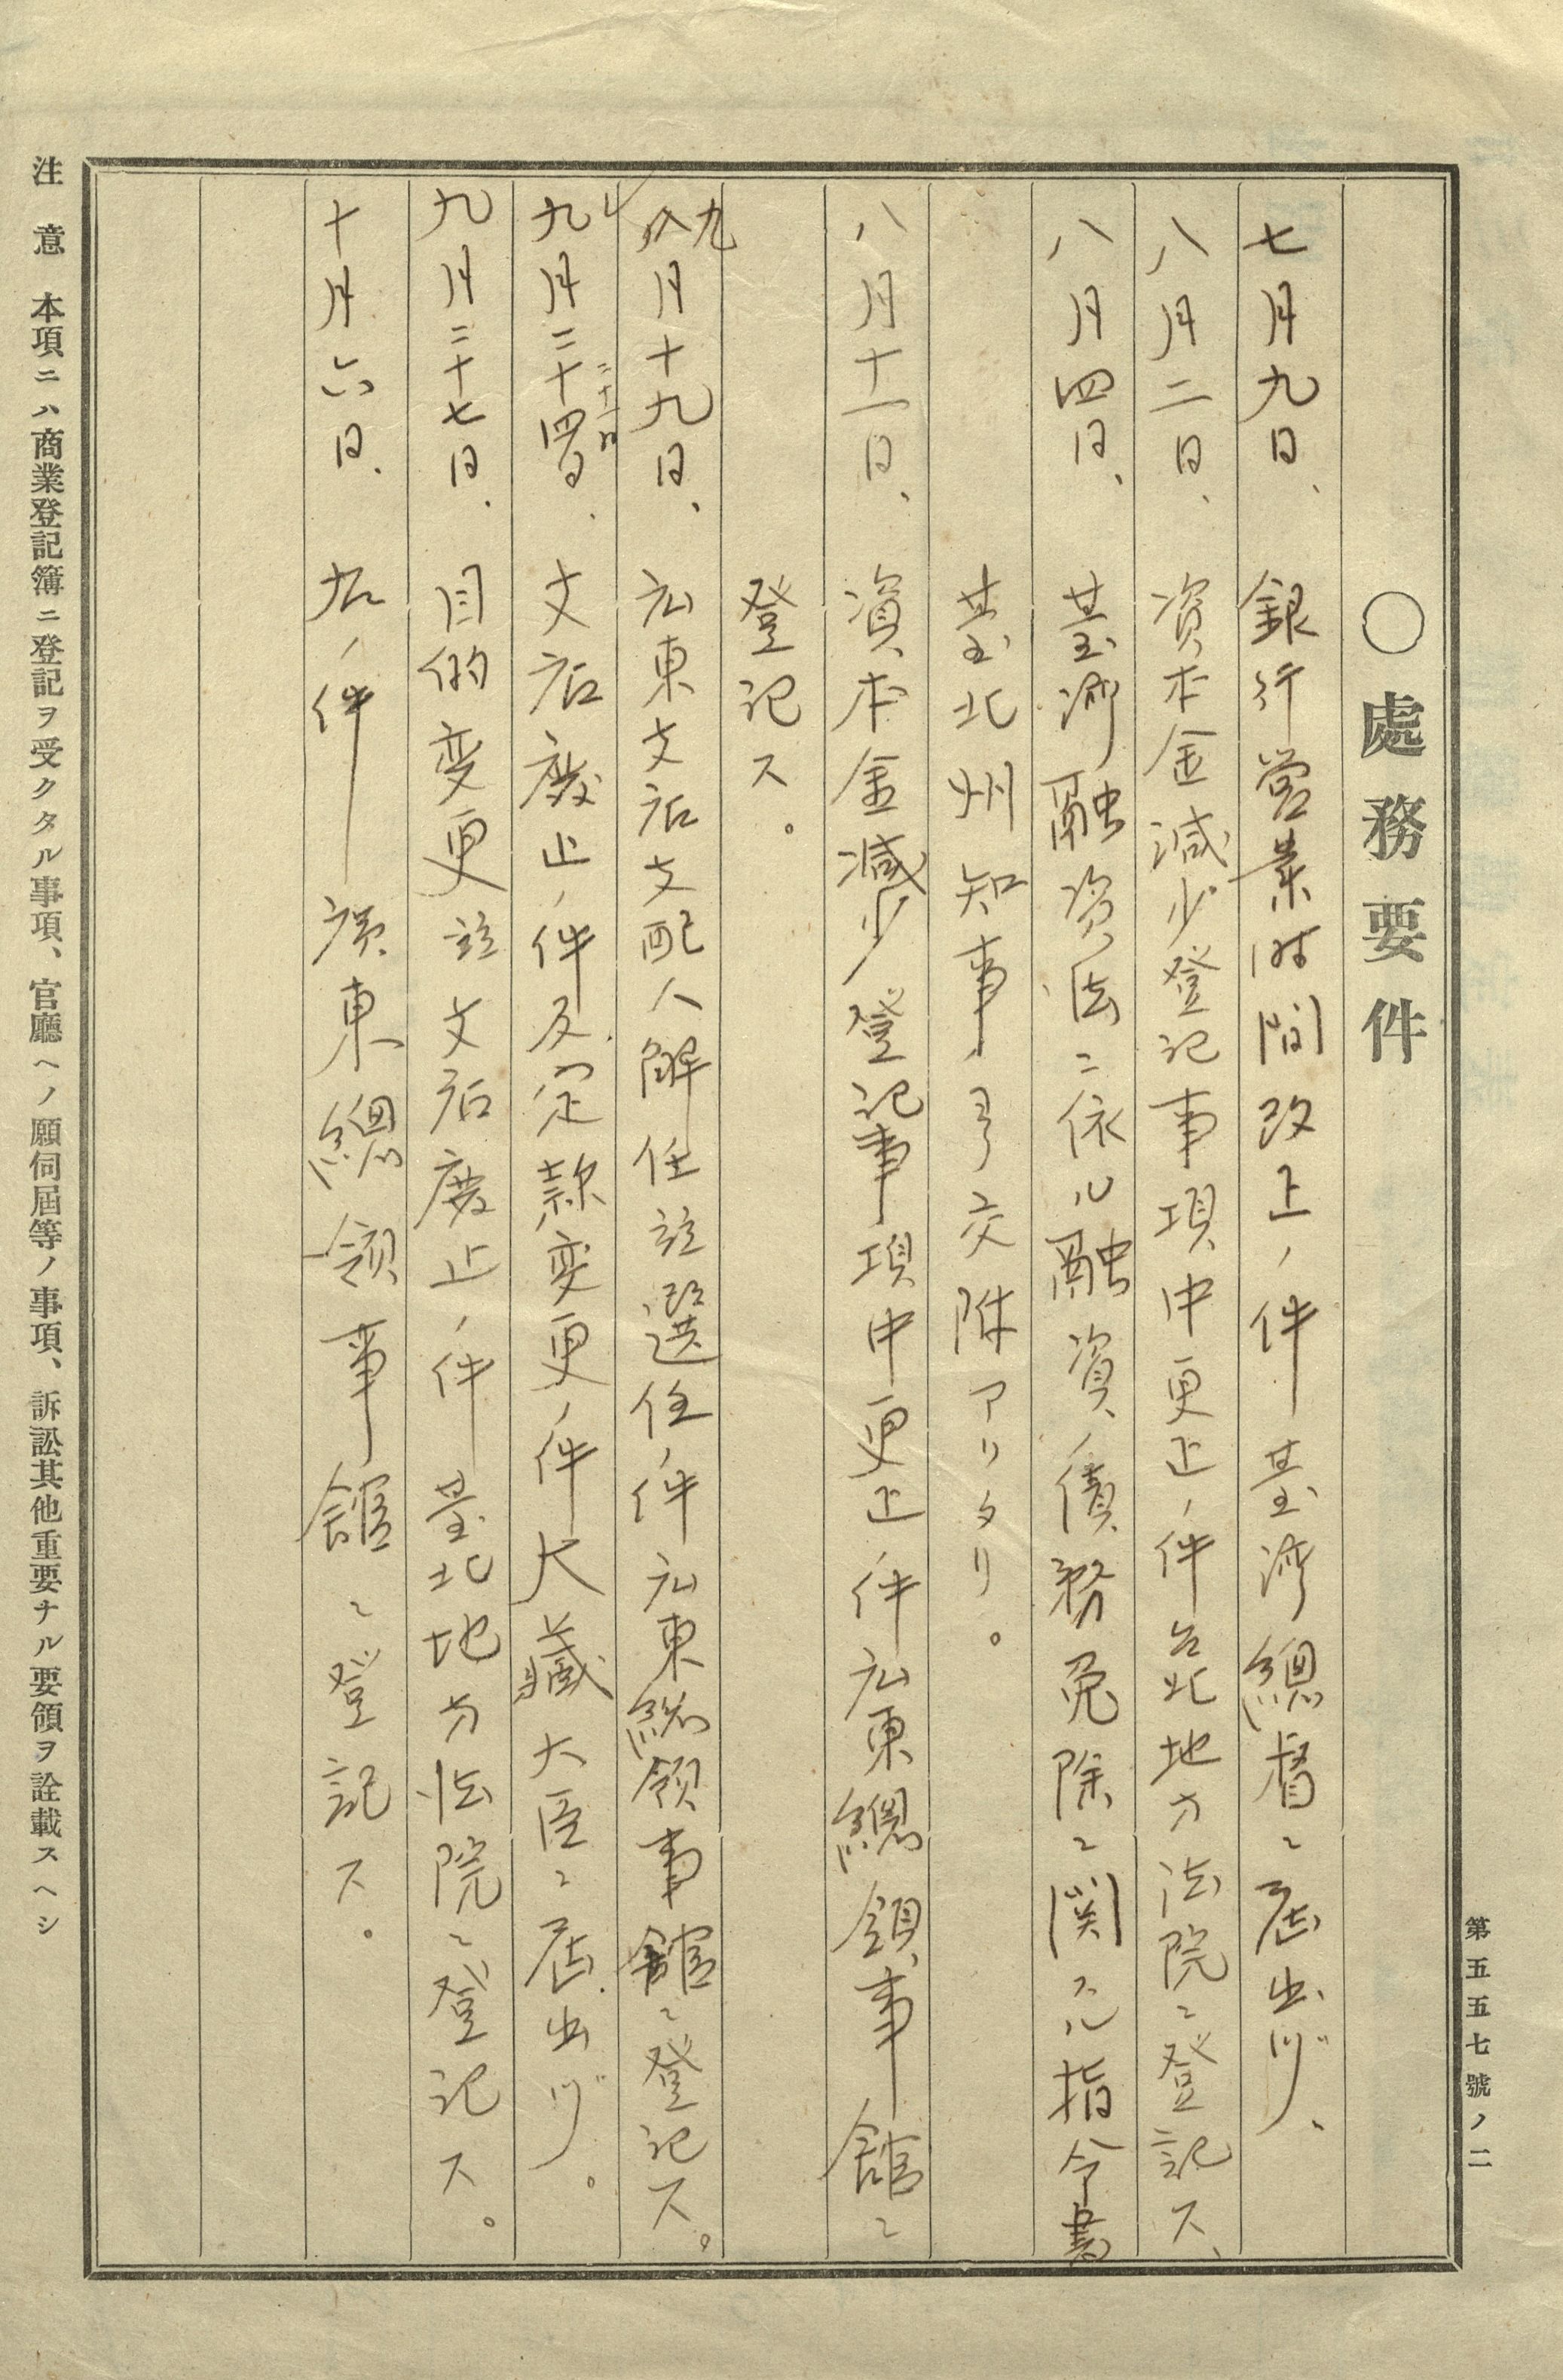 第五五七號ノ二
〇處務要件
七月九日、銀行營業時間改正ノ件臺湾總督ニ届出ヅ、
八月二日、資本金減少登記事項中更正ノ件台北地方法院ニ登記ス、
八月四日、臺湾融資法ニ依ル融資ノ債務免除ニ関スル指令書
臺北州知事ヨリ交附アリタリ。
八月十一日、資本金減少登記事項中更正ノ件広東總領事館ニ
登記ス。
九
八月十九日、広東支店支配人解任並選任ノ件広東総領事館ニ登記ス。
二十一日
九月二十四日、支店廢止ノ件及定款変更ノ件大藏大臣ニ届出ヅ。
九月二十七日、目的変更並支店廢止ノ件臺北地方法院ニ登記ス。
十月六日、右ノ件広東總領事館ニ登記ス。
注意 本項ニハ商業登記簿ニ登記ヲ受クタル事項、官廳ヘノ願伺屆等ノ事項、訴訟其他重要ナル要領ヲ詮載スヘシ